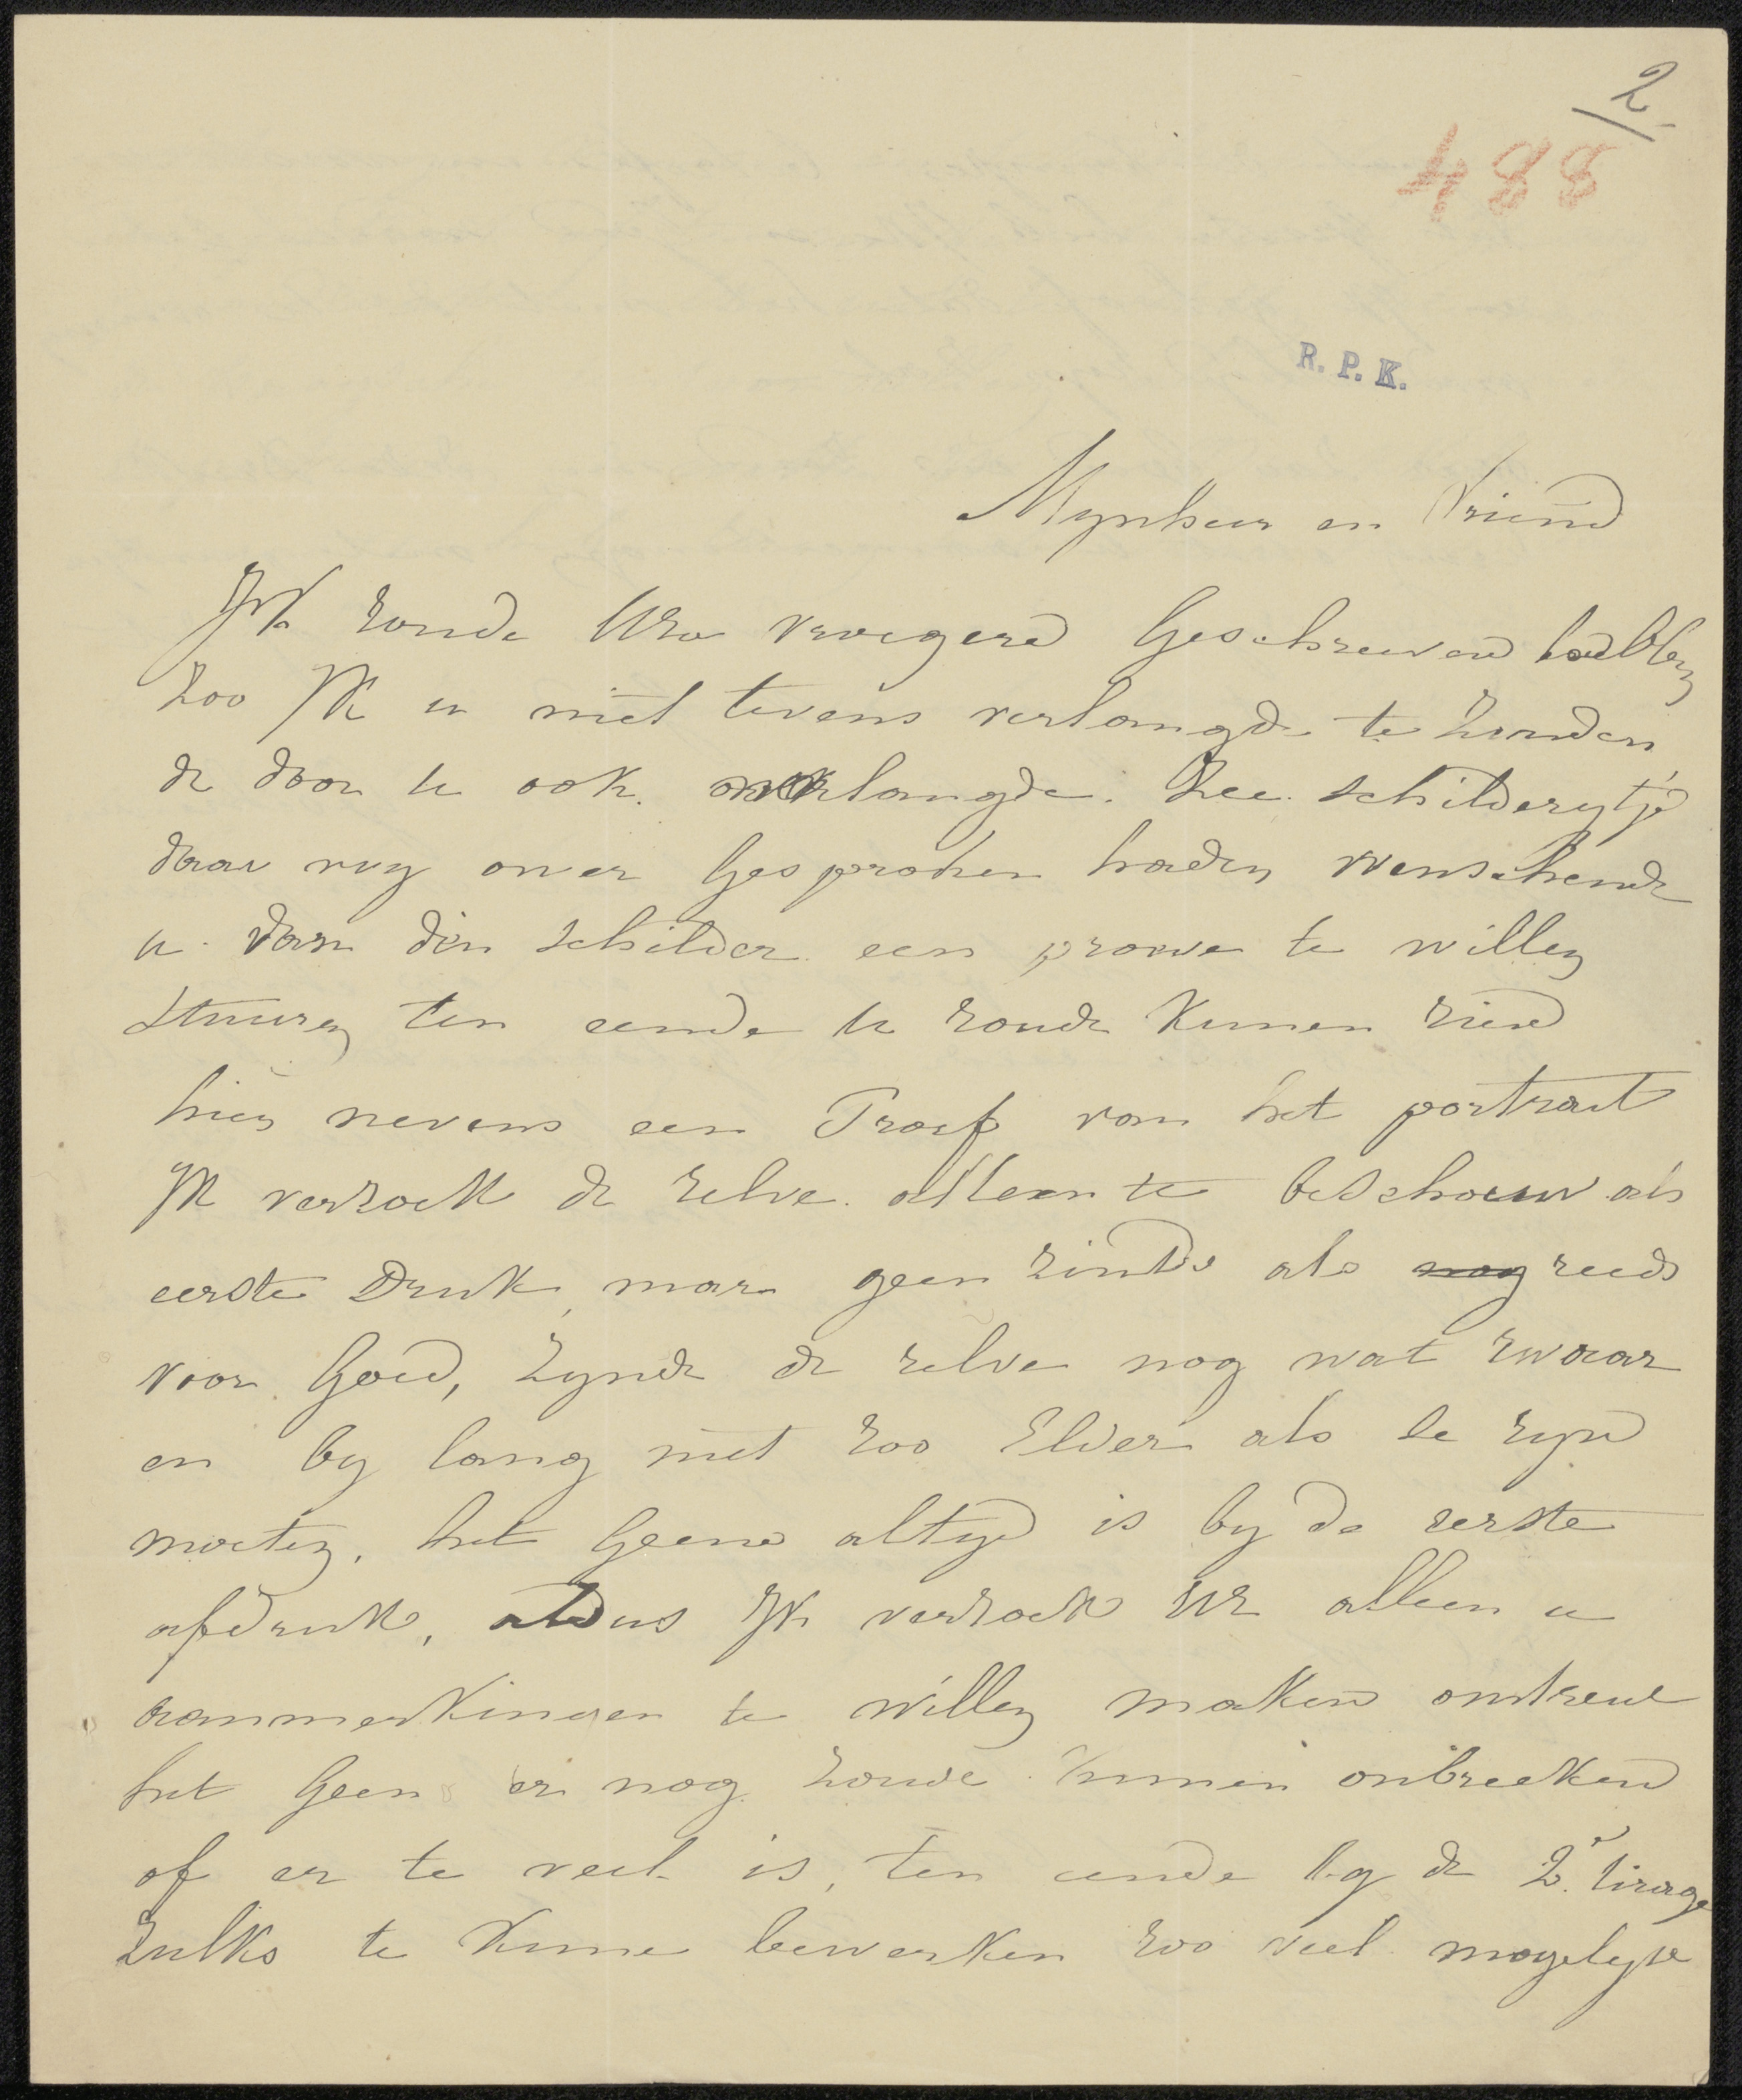 2
488
R. P. K.
Mynheer en Vriend
Ik zoude UEa vroegere Geschreeven hebben
zoo Ik u niet tevens verlangde te zenden
de door u ook verlangde. Zee schilderytje
daar wy over Gesproken hadden wenschende
u van dien schilder een proeve te willen
stuuren ten eende u zoude kunnen zien
hier nevens een Proef van het portrait
Ik verzoek de zelve alleen te beschouw als
eerste Druk, maar geen zints als nog reeds
voor Goed, zynde de zelve nog wat zwaar
en by lang niet zoo Elder als ze zyn
moeten, het Geene altyd is by de eerste
afdruk, aldus Ik verzoek UE alleen u
aanmerkingen te willen maken omtrent
het Geen er nog zoude kunnen onbreeken
of er te veel is, ten eende by de 2e tirage
zulks te kunne bewerken zoo veel mogelyk